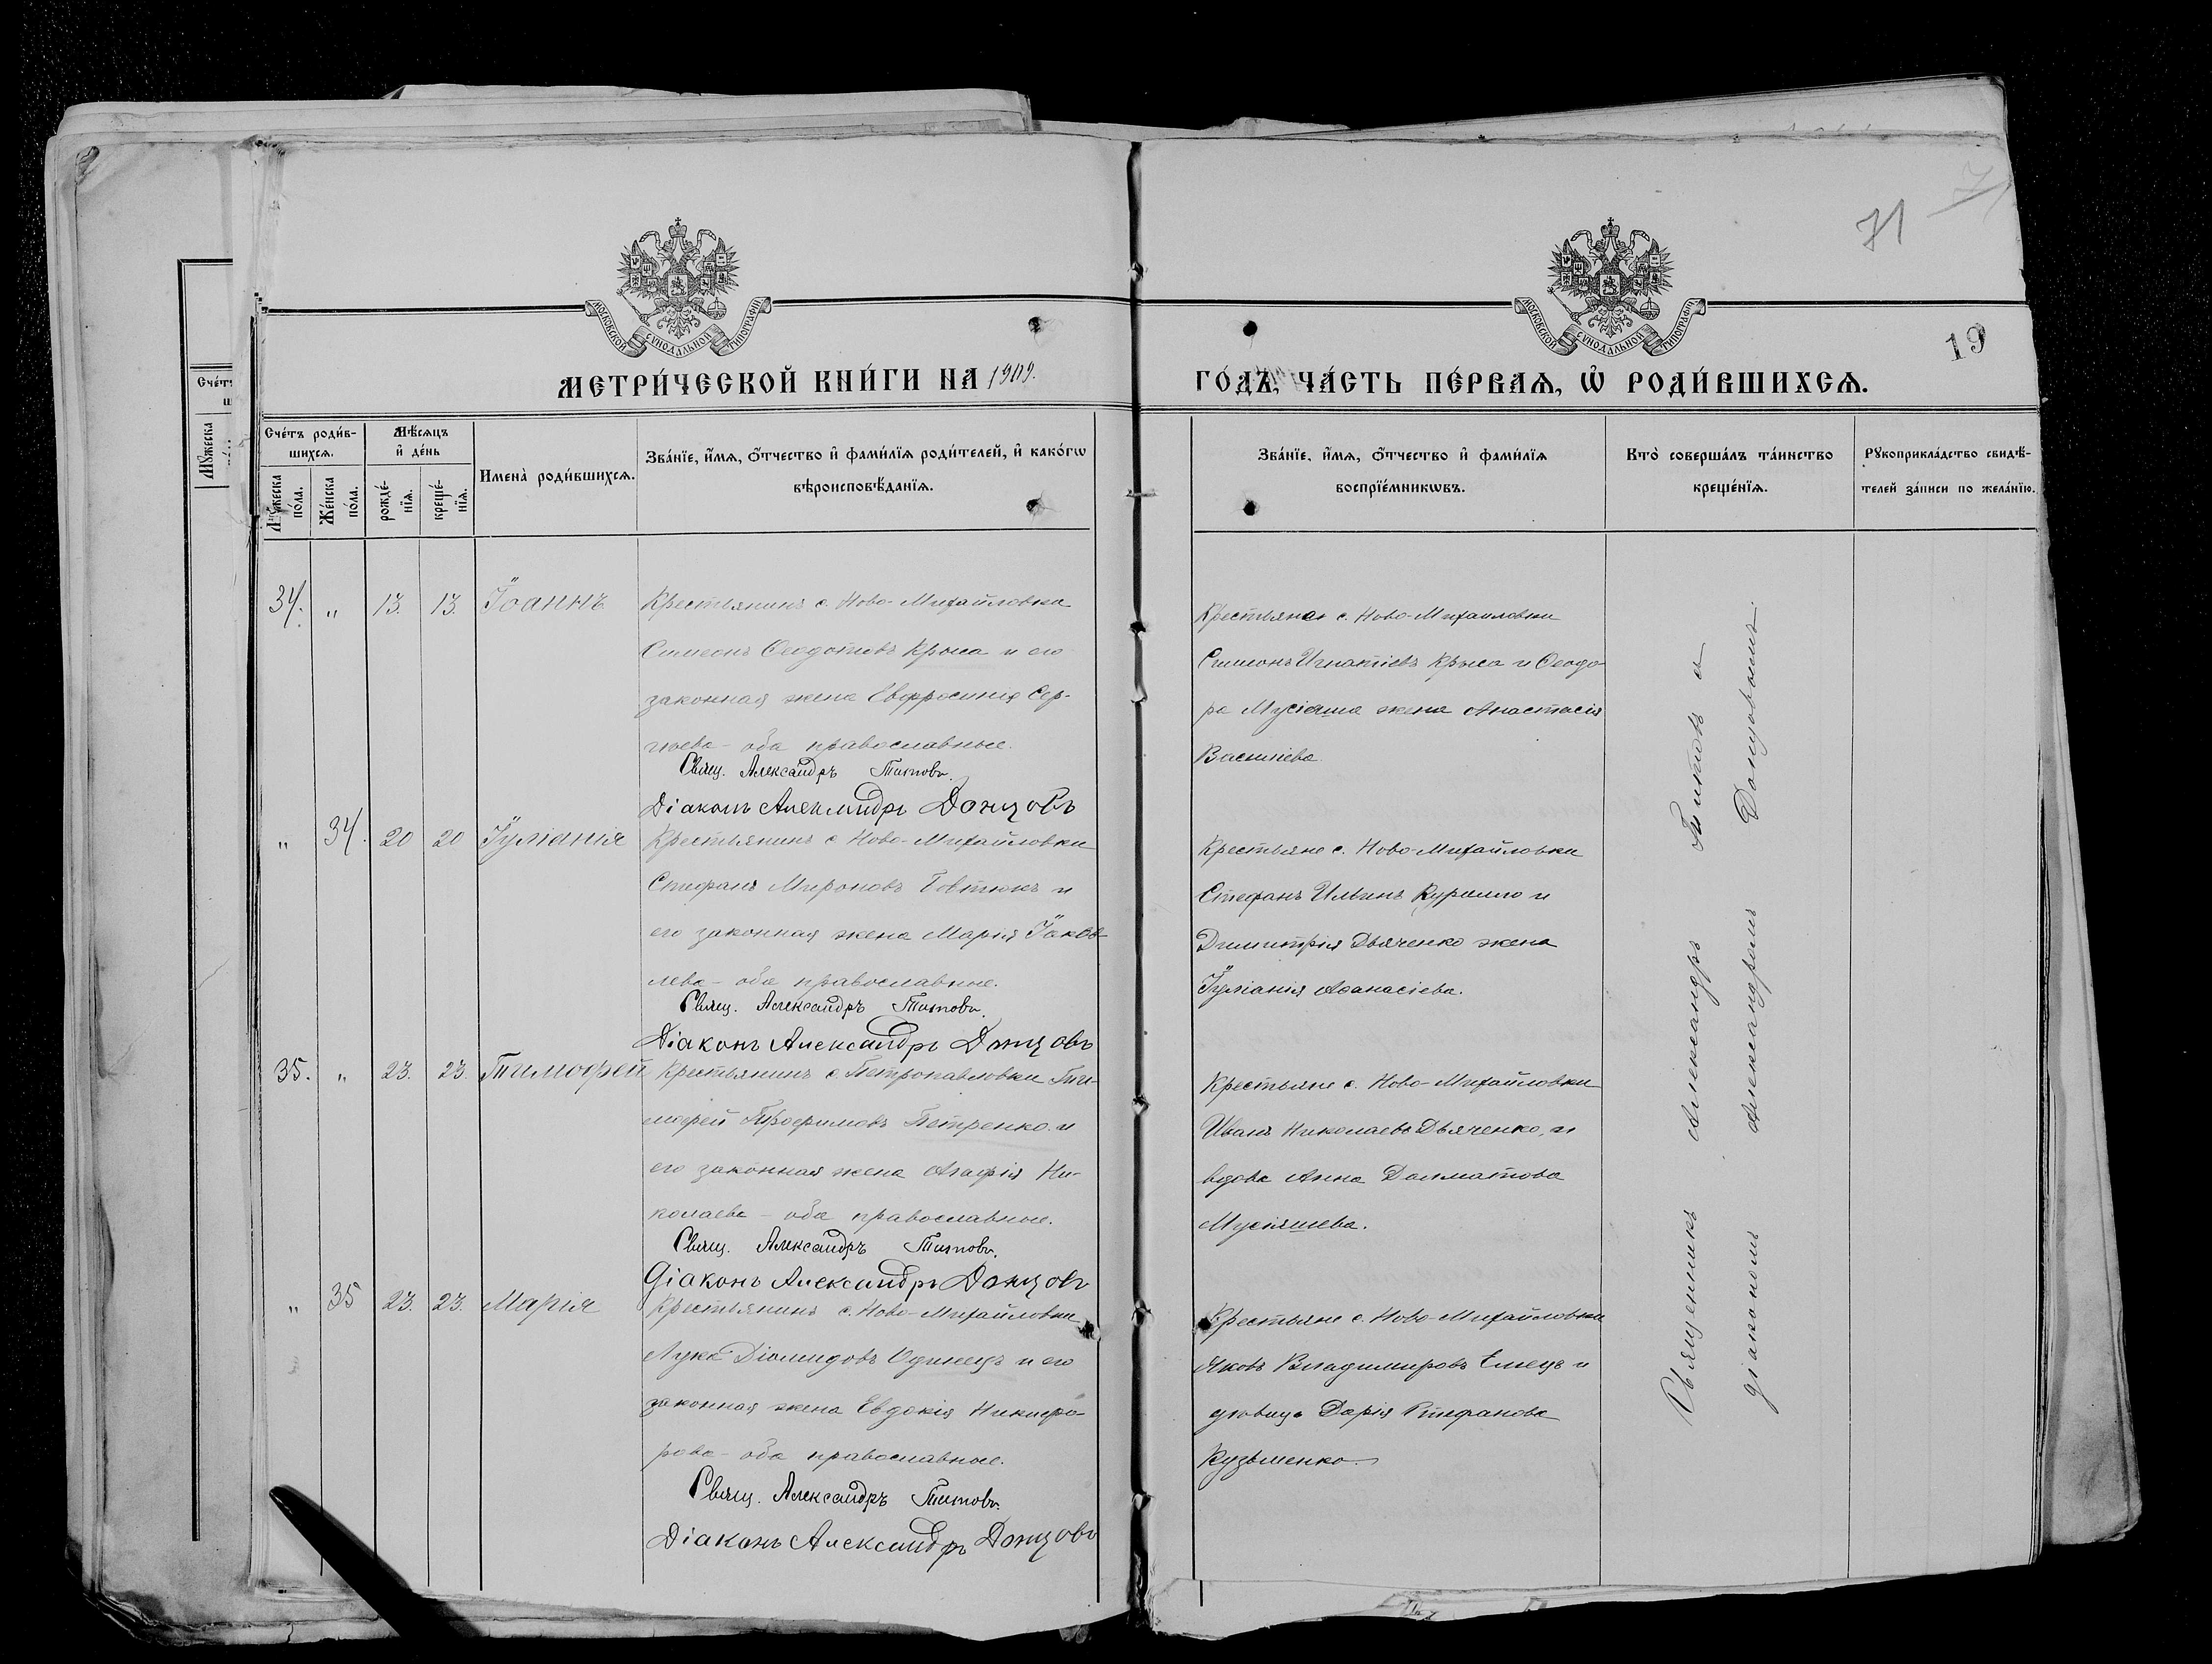 71
19
МОСКОВСКОЙ СѴНОДАЛЬНОЙ ТИПОГРАФІИ
МОСКОВСКОЙ СѴНОДАЛЬНОЙ ТИПОГРАФІИ
МЕТРИ́ЧЕСКОЙ КНИ́ГИ НА 1909.
ГО́ДЪ, ЧА́СТЬ ПЕ́РВАѦ, Ѡ҆ РОДИ́ВШИХСѦ.
Сче́тъ роди́в-
шихсѧ.
Мꙋ́жеска по́ла.
Же́нска по́ла.
Мѣ́сѧцъ
и҆ де́нь
рожде́-
нїѧ.
креще́-
нїѧ.
Имена̀ роди́вшихсѧ.
Зва́нїе, и҆́мѧ, ѻ҆́тчество и҆ фами́лїѧ роди́телей, и҆ како́гѡ
вѣроисповѣ́данїѧ.
Зва́нїе, и҆́мѧ, ѻ҆́тчество и҆ фами́лїѧ
воспрїе́мникѡвъ.
Кто̀ соверша́лъ та́инство
креще́нїѧ.
Рꙋкоприкла́дство свидѣ́-
телей за́писи по жела́нїю.
34. " 13. 13. Іоаннъ
Крестьянинъ с. Ново-Михайловки
Симеонъ Ѳеодотовъ Крыса и его
законная жена Евфросинія Сер-
гіева - оба православные.
Свящ. Александръ Титовъ.
Діаконъ Александръ Донцовъ
Крестьяне с. Ново-Михайловки
Симеонъ Игнатіевъ Крыса и Ѳеодо-
ра Мусіяша жена Анастасія
Василіева.
" 34. 20 20 Іуліанія
Крестьянинъ с. Ново-Михайловки
Стефанъ Мироновъ Товтюкъ и
его законная жена Марія Іаков-
лева - оба православные.
Свящ. Александръ Титовъ.
Діаконъ Александръ Донцовъ
Крестьяне с. Ново-Михайловки
Стефанъ Ильинъ и
Димитрія Дьяченко жена
Іуліанія Аѳанасіева.
35. " 23. 23. Тимофей
Крестьянинъ с. Петропавловки Ти-
мофей Трофимовъ Петренко и
его законная жена Агафія Ни-
колаева - оба православные.
Свящ. Александръ Титовъ.
Діаконъ Александръ Донцовъ
Крестьяне с. Ново-Михайловки
Иванъ Николаевъ Дьяченко, и
вдова Анна Долматова
Мусіяшева.
" 35 23. 23. Марія
Крестьянинъ с. Ново-Михайловки
Лука Діомидовъ Одинецъ и его
законная жена Евдокія Никифо-
рова - оба православные.
Свящ. Александръ Титовъ.
Діаконъ Александръ Донцовъ
Крестьяне с. Ново-Михайловки
Яковъ Владимировъ Емецъ и
дѣвица Дарія Стефанова
Кузьменко.
Священникъ Александръ Титовъ с
діакономъ Александромъ Донцовымъ.